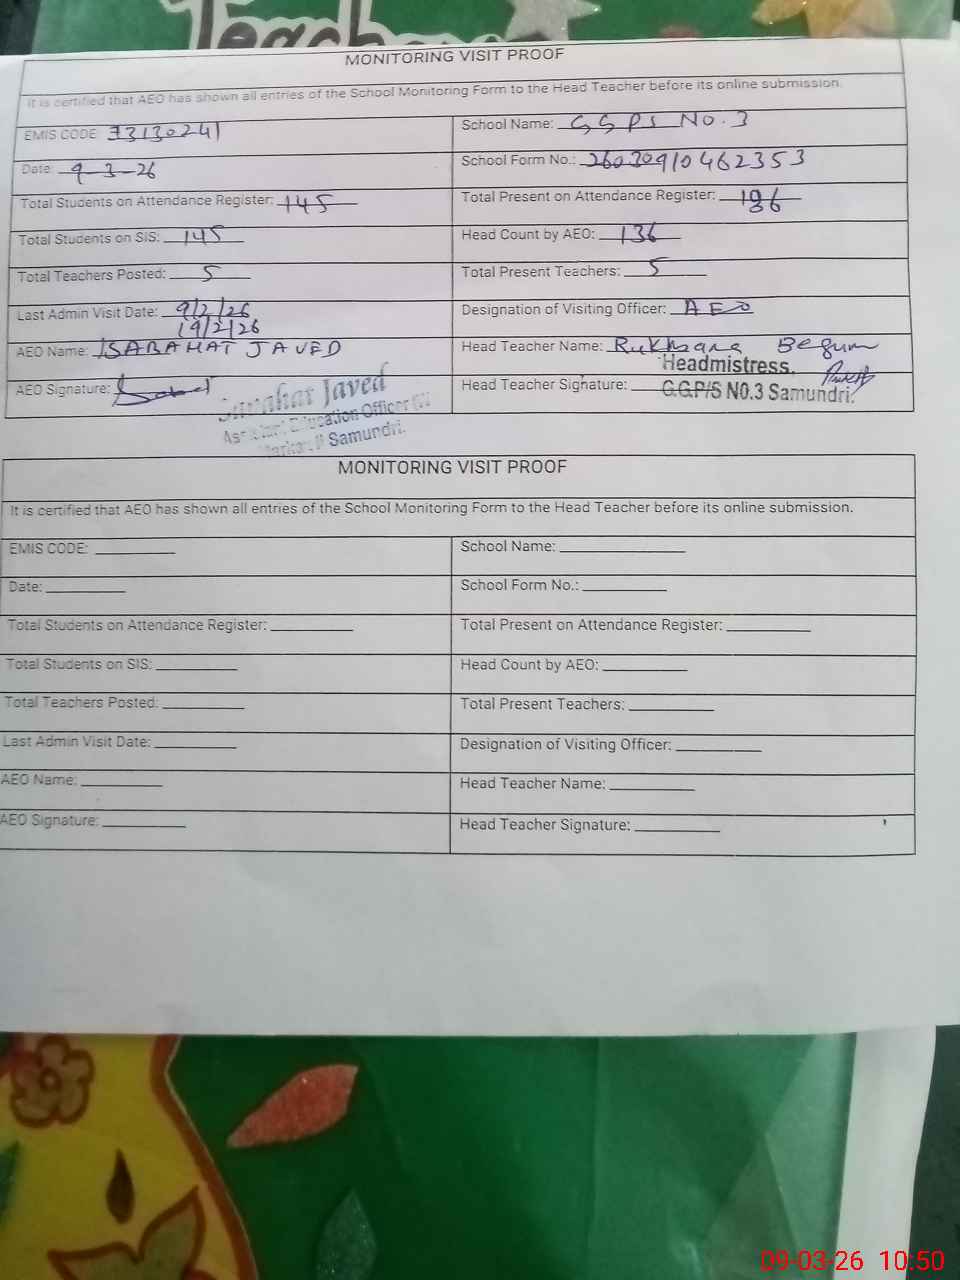 Teacher
MONITORING VISIT PROOF
It is certified that AEO has shown all entries of the School Monitoring Form to the Head Teacher before its online submission.
EMIS CODE: 33130241 School Name: GGPS No.3
Date: 9-3-26 School Form No.: 26030910462353
Total Students on Attendance Register: 145 Total Present on Attendance Register: 136
Total Students on SIS: 145 Head Count by AEO: 136
Total Teachers Posted: 5 Total Present Teachers: 5
Last Admin Visit Date: 9/2/26 Designation of Visiting Officer: AEO
19/2/26
AEO Name: SABAHAT JAVED Head Teacher Name: Rukhsana Begum
AEO Signature: Head Teacher Signature:
Headmistress,
G.G.P/S NO.3 Samundri.
Javed
Assistant Education Officer
Markaz Samundri.
MONITORING VISIT PROOF
It is certified that AEO has shown all entries of the School Monitoring Form to the Head Teacher before its online submission.
EMIS CODE: School Name:
Date: School Form No.:
Total Students on Attendance Register: Total Present on Attendance Register:
Total Students on SIS: Head Count by AEO:
Total Teachers Posted: Total Present Teachers:
Last Admin Visit Date: Designation of Visiting Officer:
AEO Name: Head Teacher Name:
AEO Signature: Head Teacher Signature:
09-03-26 10:50